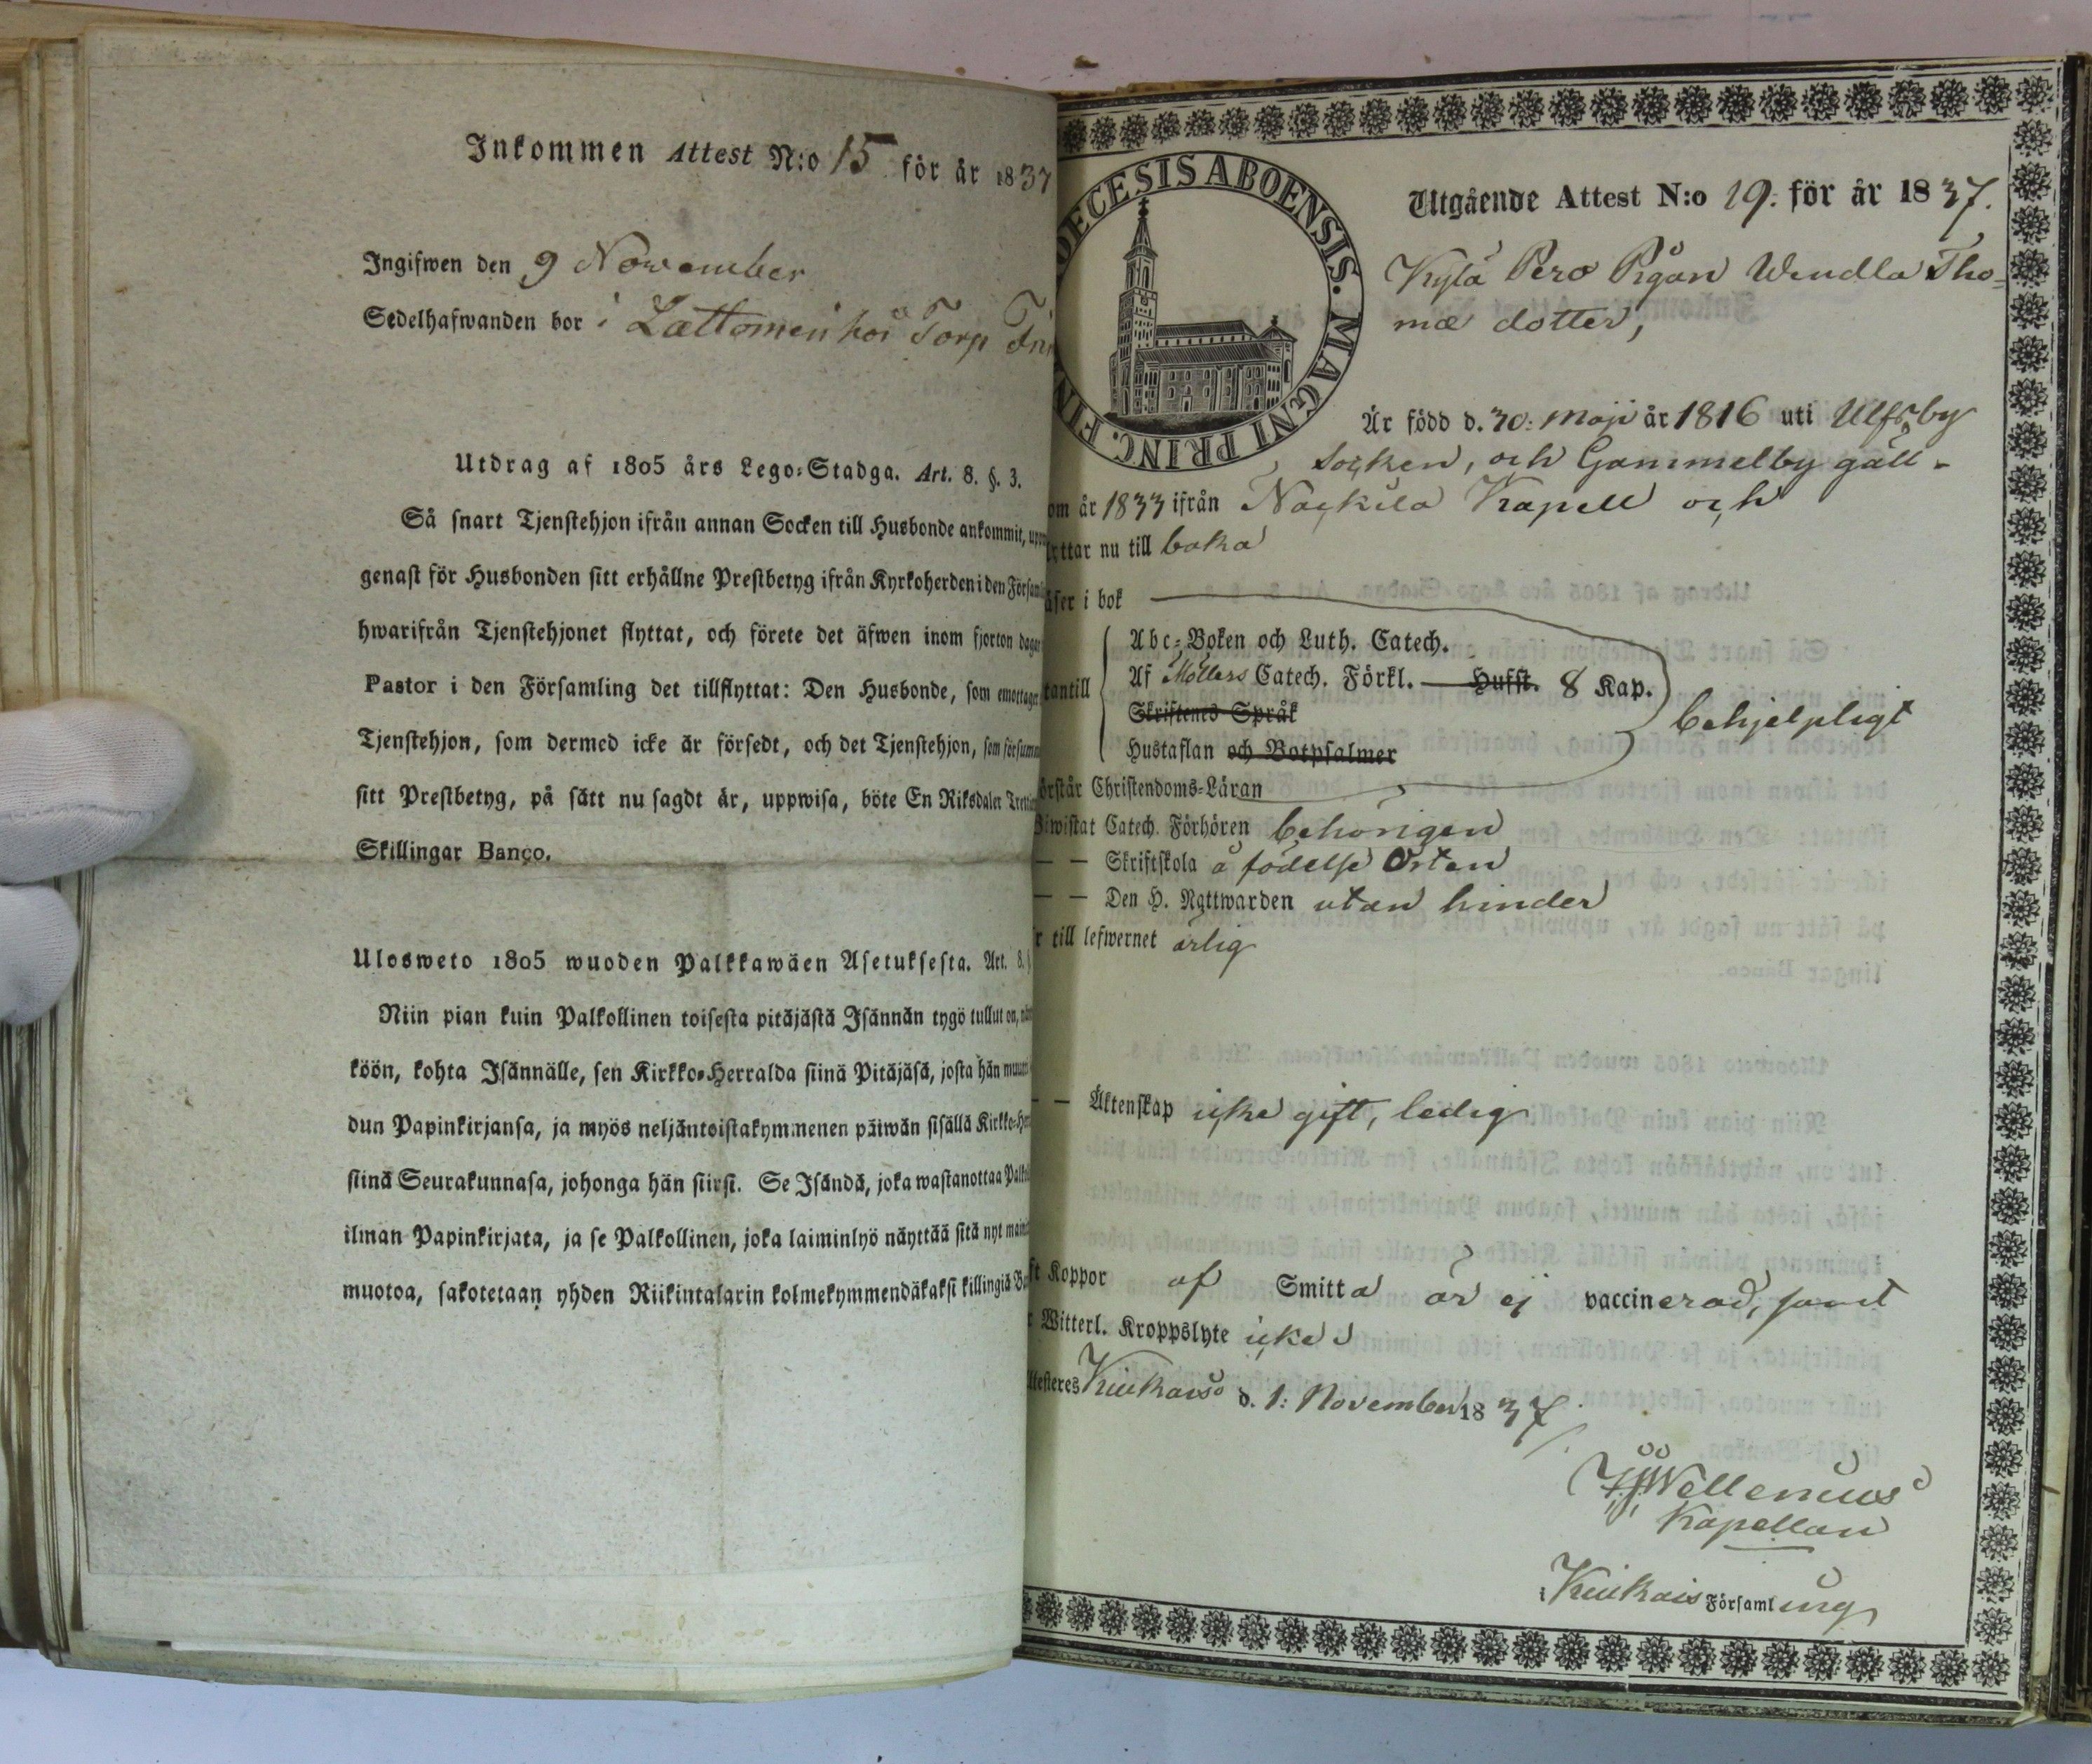 Inkommen Attest N:o 15 för år 1837
Ingifwen den 9 November
Sedelhafwanden bor i Lattomen Torp
Utdrag af 1805 års Lego-Stadga. Art. 8. §. 3.
Så snart Tjenstehjon ifrån annan Socken till Husbonde ankommit,
genast för Husbonden sitt erhållne Prestbetyg ifrån Kyrkoherden i den
hwarifrån Tjenstehjonet flyttat, och förete det äfwen inom fjorton dagar
Pastor i den Församling det tillflyttat: Den Husbonde, som emottager
Tjenstehjon, som dermed icke är försedt, och det Tjenstehjon, som
sitt Prestbetyg, på sätt nu sagdt är, uppwisa, böte En Riksdaler
Skillingar Banco.
Ulosweto 1805 wuoden Palkkawäen Asetuksesta. Art. 8.
Niin pian kuin Palkollinen toisesta pitäjästä Isännän tygö tullut on,
köön, kohta Isännälle, sen Kirkko-Herralda siinä Pitäjäsä, josta hän
dun Papinkirjansa, ja myös neljäntoistakymmenen päiwän sisällä
siinä Seurakunnasa, johonga hän siirsi. Se Isändä, joka wastanottaa
ilman Papinkirjata, ja se Palkollinen, joka laiminlyö näyttää sitä nyt
muotoa, sakotetaan yhden Riikintalarin kolmekymmendäkaksi killingiä
DECESIS ABOENSIS. MAGNI PRINC. FIN
Utgående Attest N:o 19. för år 1837.
Kylä Pero Pigan Wendla Tho-
mæ dotter,
Är född d. 30: Maji år 1816 uti Ulfsby
Socken, och Gammelby gäll-
om år 1833 ifrån Nackila Kapell och
ttar nu till baka
äser i bok
Abc-Boken och Luth. Catech.
Af Möllers Catech. Förkl. Hufst. 8 Kap.
tantill
Skriftenes Språk
behjelpligt
Hustaflan och Botpsalmer
örstår Christendoms-Läran
Biwistat Catech. Förhören behörigen
— — Skriftskola å födelse Orten
— — Den H. Nattwarden utan hinder
r till lefwernet ärlig
— — Äktenskap icke gift, ledig
ft Koppor af Smitta är ej vaccinerad, samt
r Witterl. Kroppslyte icke
ttesteres Kiukais d. 1: November 1837.
Wellenius
Kapellan
i Kiukais Församling